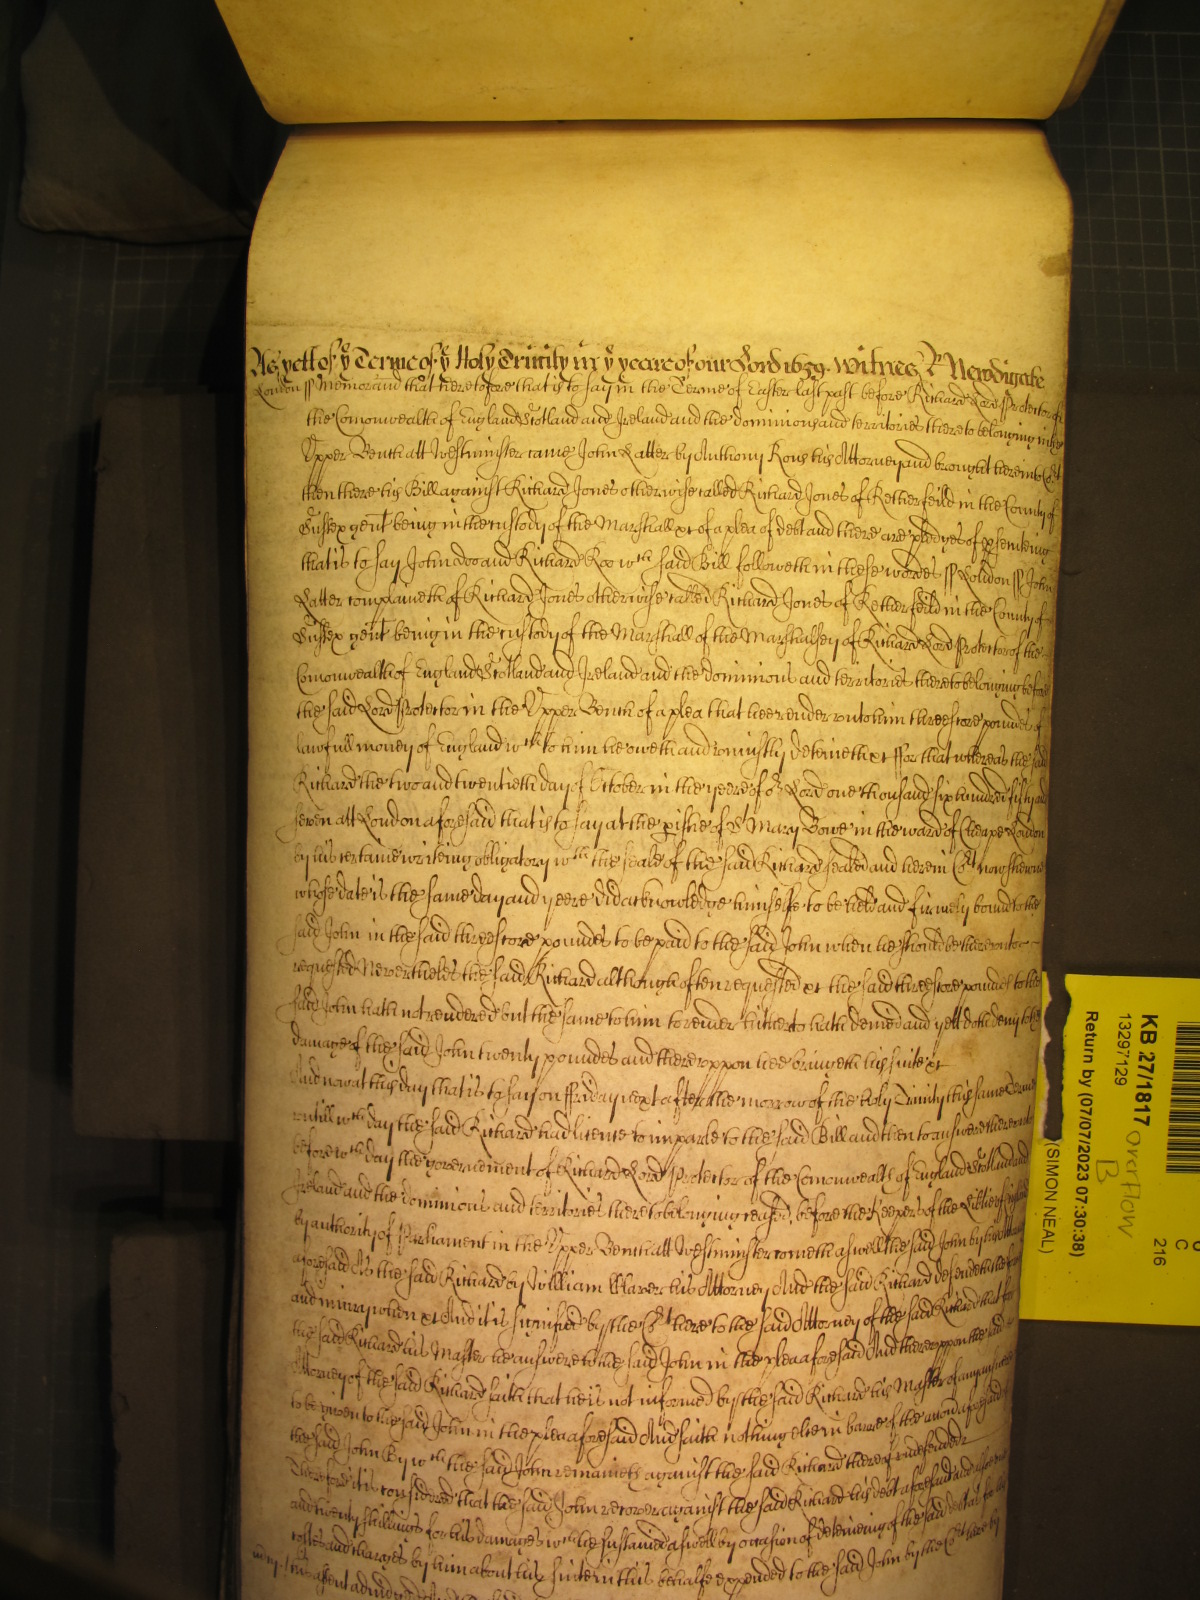 As yett of ye Terme of ye Holy Trinity in ye yeare of our Lord 1659. Witnes R Newdigate
London ss Memorand that heretofore that is to say in the Terme of Easter last past before Richard Lord Protector of
the Comonwealth of England Scotland and Ireland and the dominions and territories thereto belonging in the
Upper Bench att Westminster came John Latter by Anthony Rous his Attorney and brought here into Cort
then there his Bill against Richard Jones otherwise called Richard Jones of Retherfeild in the County of
Sussex gent being in the custody of the Marshall xt of a plea of debt and there are pledges of psenteing
that is to say John Doo and Richard Roo wch said Bill followeth in these wordes ss London ss John
Latter complaineth of Richard Jones otherwise called Richard Jones of Retherfeild in the County of
Sussex gent being in the custody of the Marshall of the Marshalsey of Richard Lord Protector of the
Comonwealth of England Scotland and Ireland and the dominions and territories thereto belonging before
the said Lord Protector in the Upper Bench of a plea that hee render unto him threescore pounds of
lawfull money of England wch to him he oweth and uniustly deteineth xt ffor that whereas the said
Richard the two and twentieth day of October in the yeere of or Lord one thousand six hundred fifty and
seven att London aforesaid that is to say at the pishe of St Mary Bowe in the ward of Cheape London
by his certaine writeing obligatory wth the seale of the said Richard sealed and here in Cort now shewne
whose date is the same day and yeere did acknowledge himselfe to be held and firmely bound to the
said John in the said threescore poundes to be paid to the said John when he should be thereunto
requested Neverthelesse the said Richard although often requested xt the said threescore pounds to the
said John hath not rendered but the same to him to render hitherto hath denied and yett doth deny to the
damage of the said John twenty poundes and thereuppon hee bringeth his suite xt
And now at this day that is to say on ffriday next after the morrow of the holy Trinity this same Terme
untill wch day the said Richard had licence to imparle to the said Bill and then to answere thereunto
before wch day the governement of Richard Lord Protector of the Comonwealth of England Scotland and
Ireland and the dominions and territories thereto belonging ceased, before the Keepers of the Libtie of England
by authority of Parliament in the Upper Bench att Westminster cometh aswell the said John by his Attorney
aforesaid As the said Richard by William his Attorney And the said Richard defendeth the force
and iniury when xt And it is signified by the Cort here to the said Attorney of the said Richard that for
the said Richard his Master he answere to the said John in the plea aforesaid And thereuppon the said
Attorney of the said Richard saith that he is not informed by the said Richard his Master of any answere
to be given to the said John in the plea aforesaid And saith nothing else in barre of the accon aforesaid of
the said John By wch the said John remaineth against the said Richard thereof undefended
Therefore it is considered that the said John recover against the said Richard his debt aforesaid and
and twenty shillings for his damages wch he sustained aswell by occasion of deteineing of the said debt as for his
costes and charges by him about his suite in this behalfe expended to the said John by the Cort here by
assent
KB 27/1817
13297129
Return by (07/07/2023 07:30:38)
(SIMON NEAL)
overflow
B
C
216